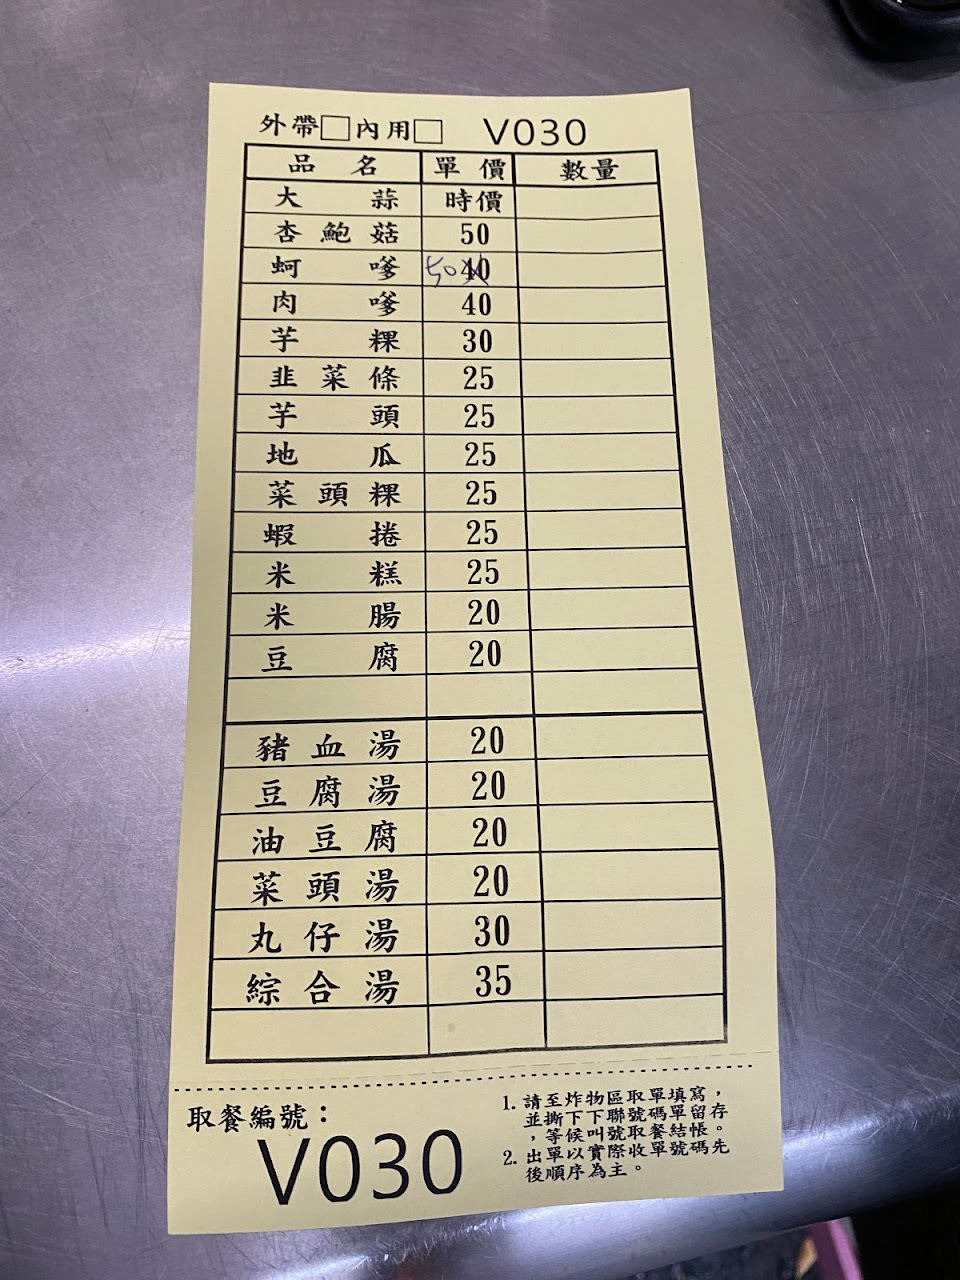 外帶□內用□ V030
品名 單價 數量
大蒜 時價
杏鮑菇 50
蚵嗲 50 40
肉嗲 40
芋粿 30
韭菜條 25
芋頭 25
地瓜 25
菜頭粿 25
蝦捲 25
米糕 25
米腸 20
豆腐 20
豬血湯 20
豆腐湯 20
油豆腐 20
菜頭湯 20
丸仔湯 30
綜合湯 35
取餐編號：
V030
1. 請至炸物區取單填寫，
並撕下下聯號碼單留存
，等候叫號取餐結帳。
2. 出單以實際收單號碼先
後順序為主。